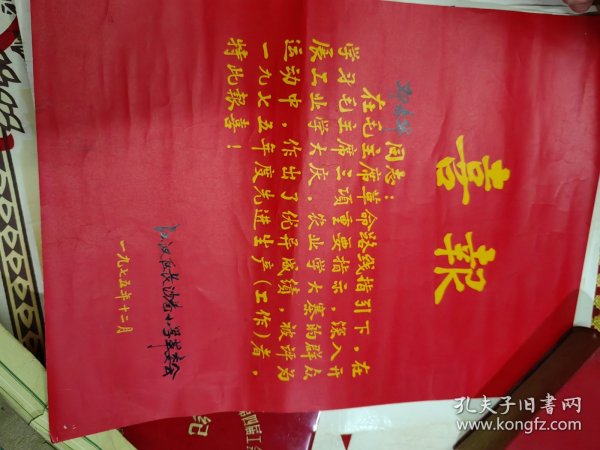 喜報
同志：
在毛主席革命路线指引下，在
学习毛主席三项重要指示，深入开
展工业学大庆，农业学大寨的群众
运动中，作出了优异成绩，被评为
一九七五年度先进生产（工作）者，
特此报喜！
小学革委会
一九七五年十二月
第四届工
纪
孔夫子旧书网
www.kongfz.com